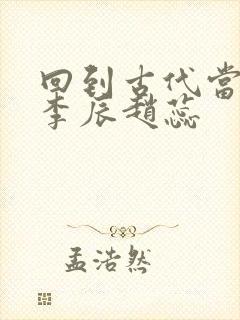 回到古代當
李辰趙蕊
孟浩然